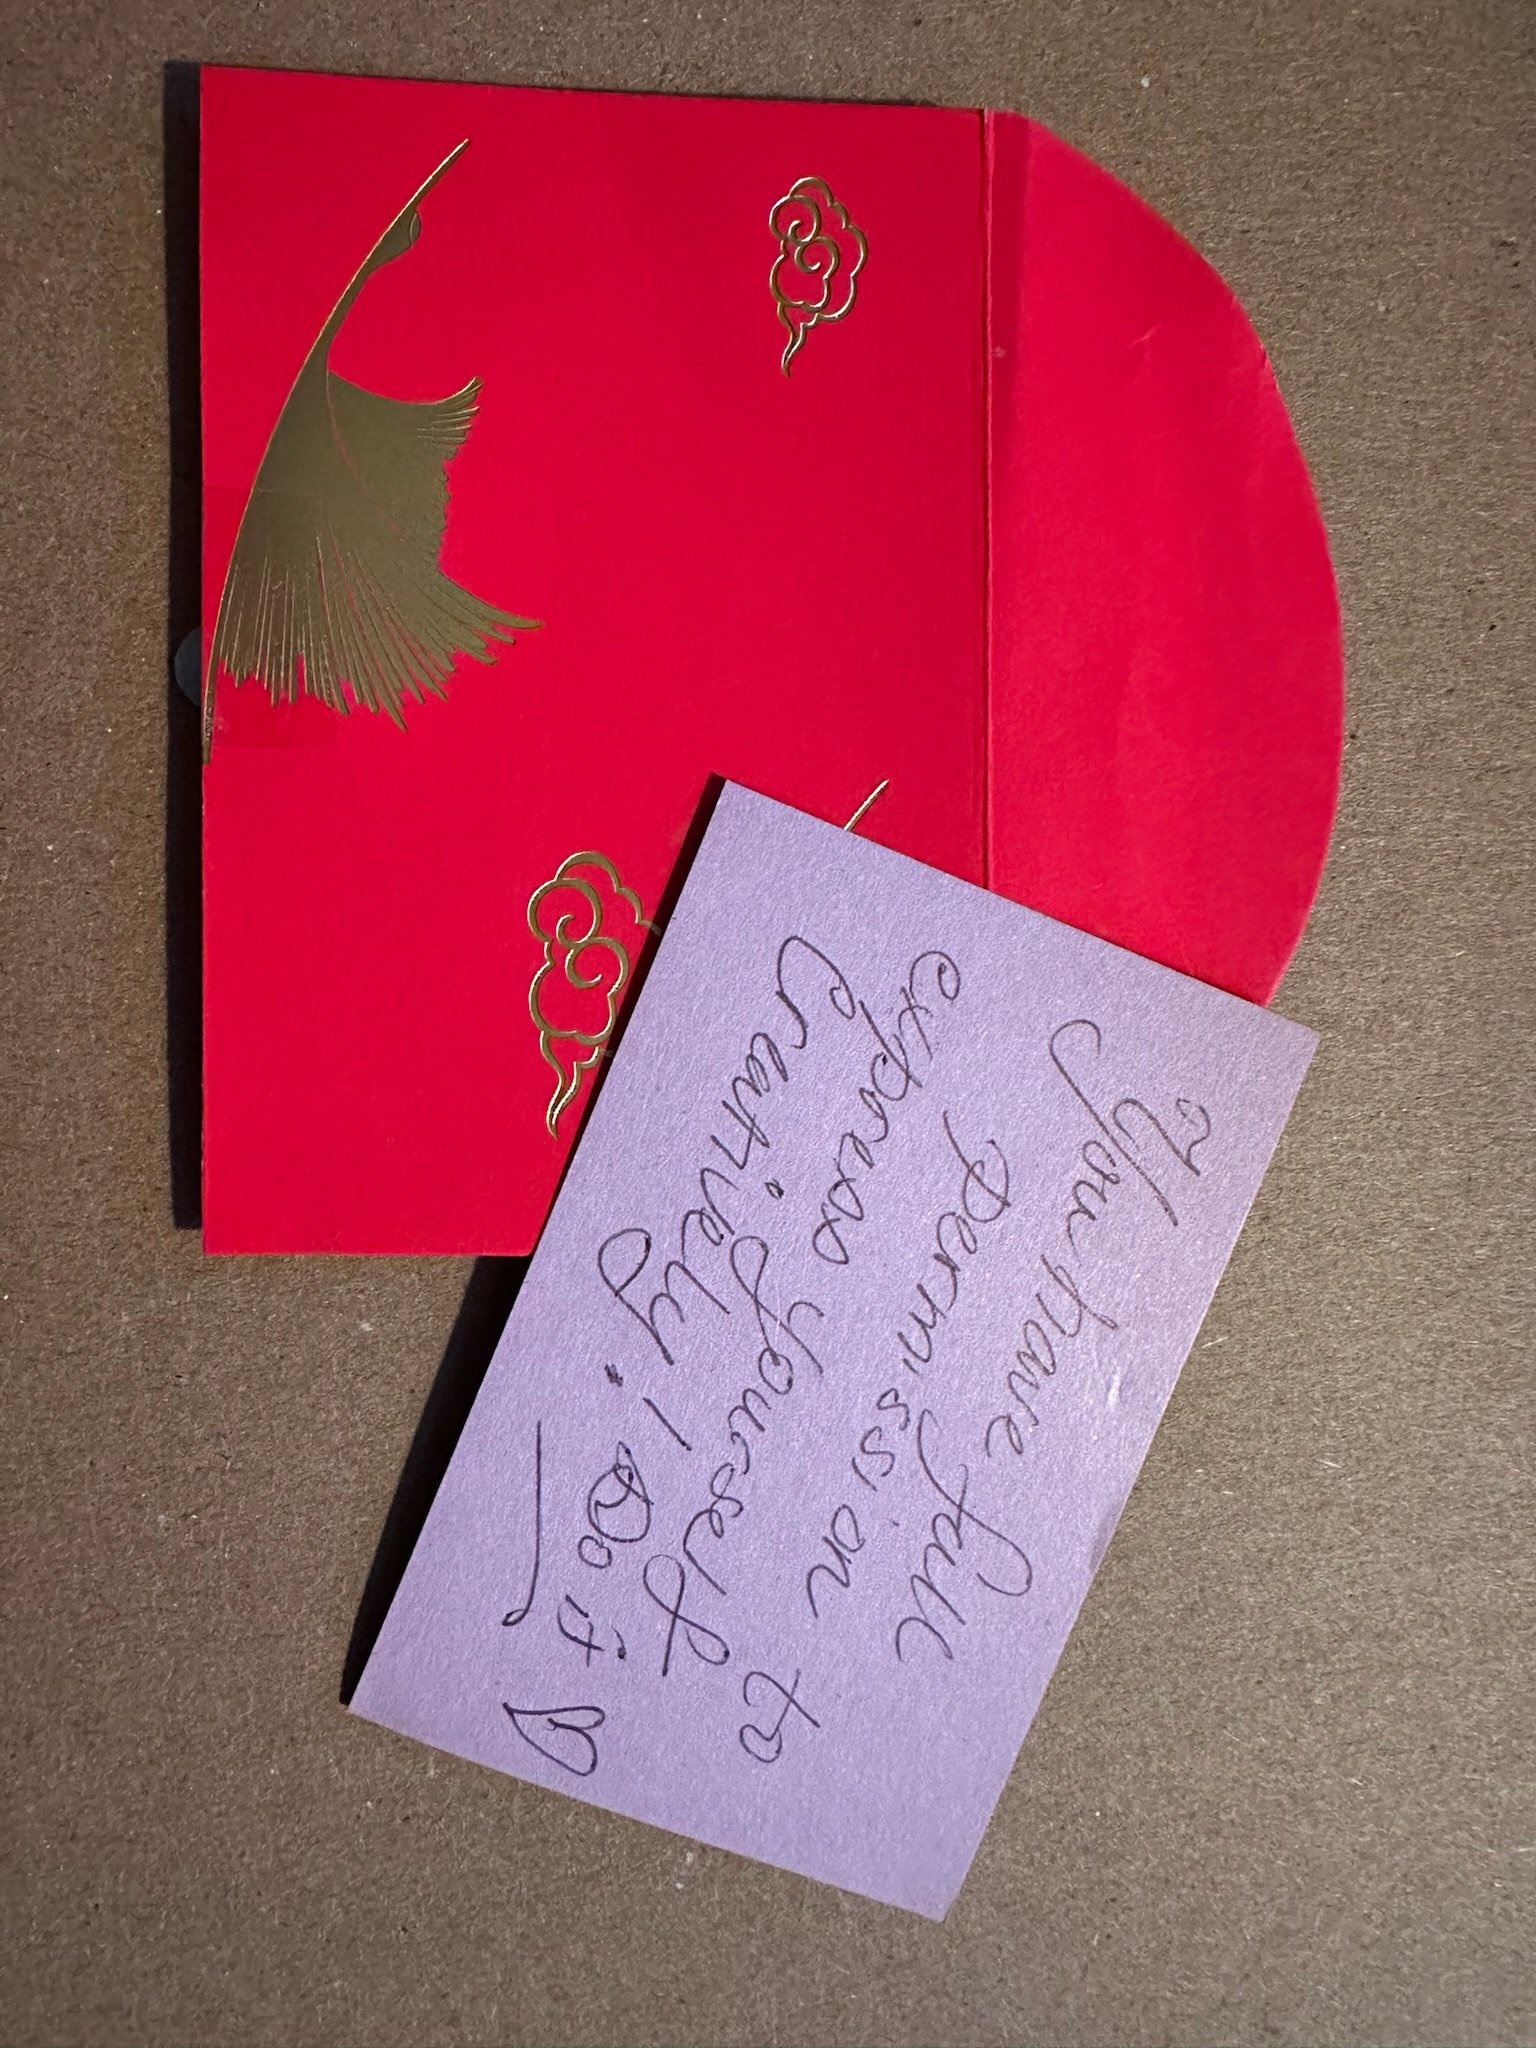 You have full
permission to
express yourself
creatively! Do it